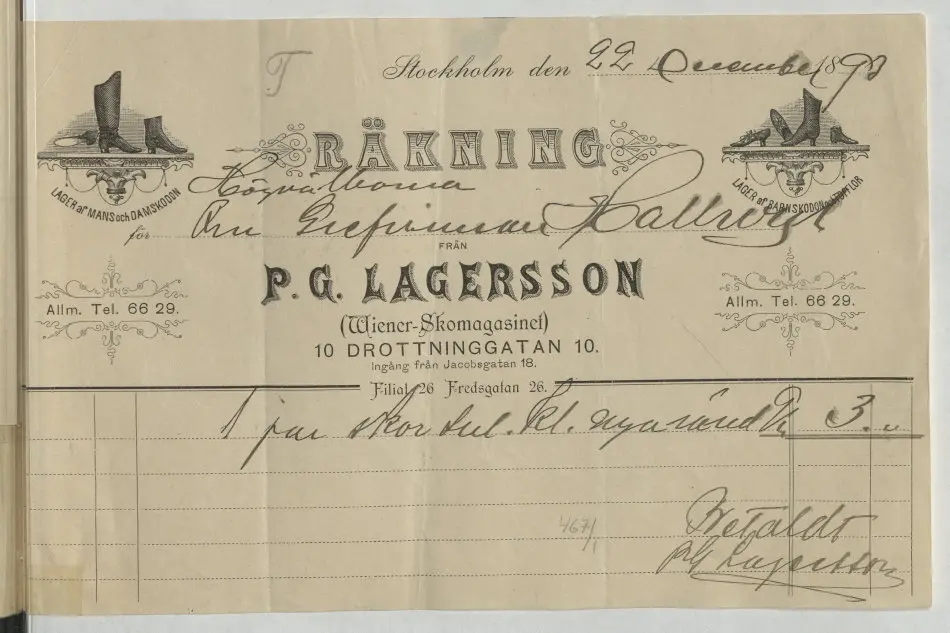 T
Stockholm den 22 December 1893
RÄKNING
LAGER af MANS och DAMSKODON
LAGER af BARNSKODON och TOFFLOR
Högvälborna
för Fru Grefvinnan Hallwyl
FRÅN
P.G. LAGERSSON
(Wiener-Skomagasinet)
Allm. Tel. 66 29.
Allm. Tel. 66 29.
10 DROTTNINGGATAN 10.
Ingång från Jacobsgatan 18.
Filial 26 Fredsgatan 26.
1 par skor kl. nya 3.
467/1
Betaldt
P.G Lagersson